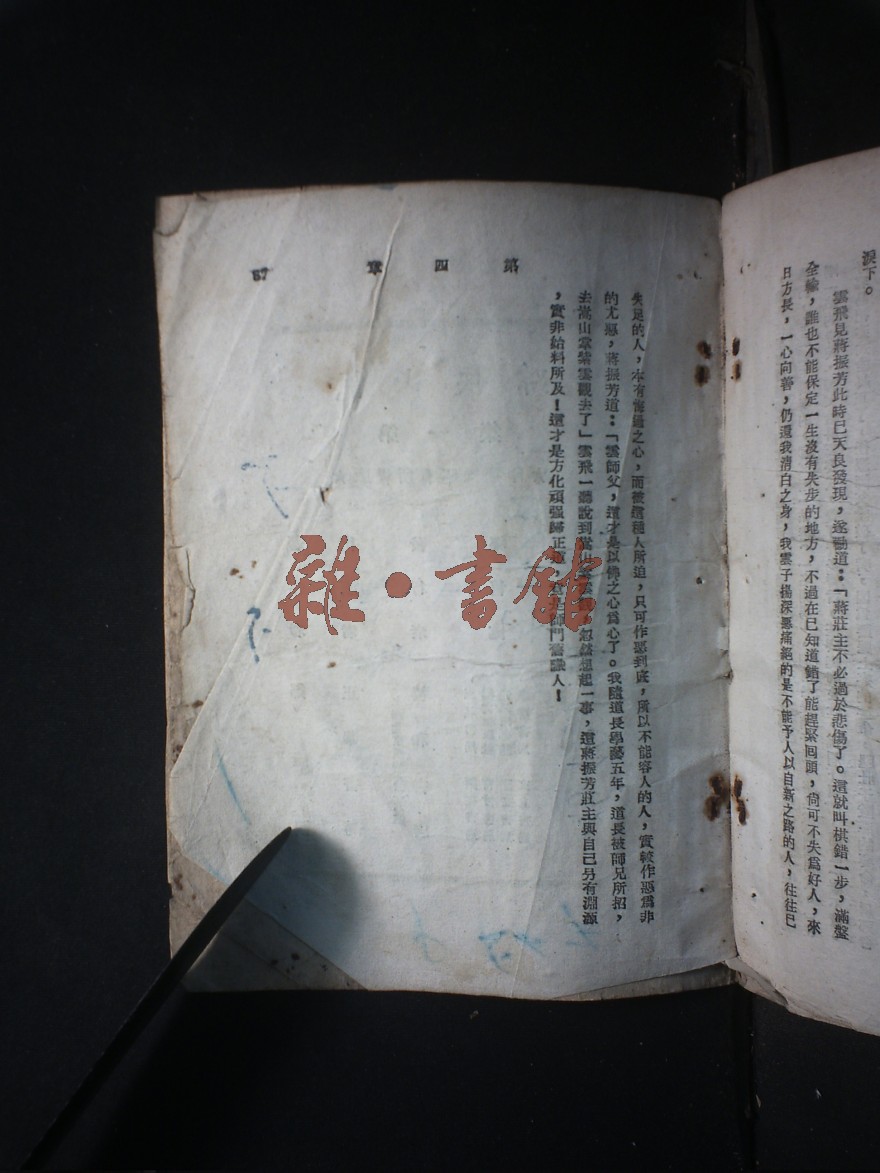 淚下。
雲飛見蔣振芳此時已天良發現,遂勸道:「蔣莊主不必過於悲傷了。這就叫棋錯一步,滿盤
全輸,誰也不能保定一生沒有失步的地方,不過在已知道錯了能趕緊回頭,尙可不失爲好人,來
日方長,一心向善,仍還我清白之身,我雲子揚深惡痛絕的是不能予人以自新之路的人,往往已
第四章 87
失足的人,本有悔過之心,而被這種人所迫,只可作惡到底,所以不能容人的人,實較作惡爲非
的尤惡,蔣振芳道:「雲師父,這才是以佛之心爲心了。我隨道長學藝五年,道長被師兄所招,
去嵩山掌紫雲觀去了」雲飛一聽說到掌 忽然想起一事,這蔣振芳莊主與自己另有淵源
,實非給料所及!這才是方化頑强歸正 師門舊議人!
雜·書館